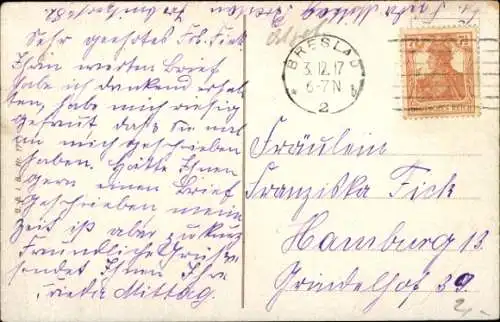 Sehr geehrtes Frl. Fick
Ihren werten Brief
habe ich dankend erhal
ten, habe mich riesig
gefreut das Sie mal
an mich geschrieben
haben. Hätte Ihnen
gern einen Brief
geschrieben meine
Zeit ist aber zu kurz
Freundliche Grüße
sendet Ihnen Ihre
Frieda Mittag.
BRESLAU
3.12.17
6-7N
2
7½ 7½
DEUTSCHES REICH
Fräulein
Franziska Fick
Hamburg 13.
Grindelhof 39